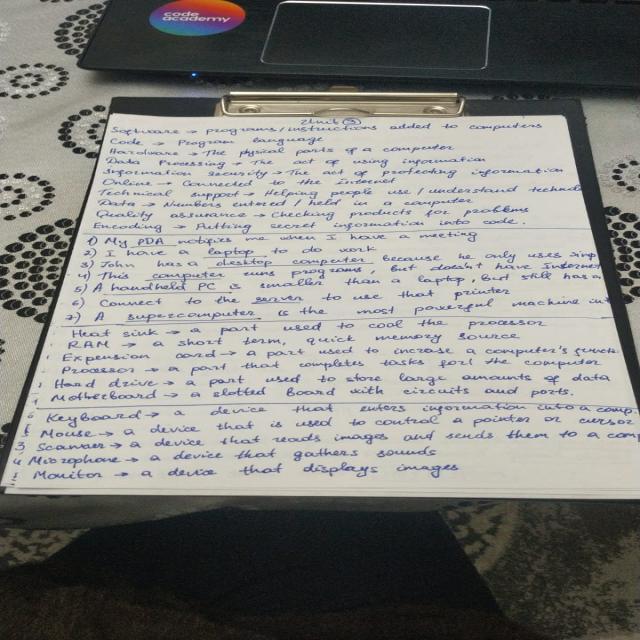 code
academy
Unit 3
Software → programs/instructions added to computers
Code → Program language
Hardware → The pysical parts of a computer
Data Processing → The act of using information
Information security → The act of protecting information
Online → Connected to the internet
Technical support → Helping people use / understand
Data → Numbers entered / held in a computer
Quality assurance → Checking products for problems
Encoding → Putting secret information into code.
1) My PDA notifies me when I have a meeting
2) I have a laptop to do work
3) John has a desktop computer because he only uses
4) This computer runs programs, but doesn't have
5) A handheld PC is smaller than a laptop, but still has
6) Connect to the server to use that printer
7) A supercomputer is the most powerful machine
Heat sink → a part used to cool the processor
RAM → a short term, quick memory source
Expension card → a part used to increase a computer's
Processor → a part that completes tasks for the computer
Hard drive → a part used to store large amounts of data
Motherboard → a slotted board with circuits and ports.
Keyboard → a device that enters information into a comp
Mouse → a device that is used to control a pointer or cursor
3 Scanner → a device that reads images and sends them to a com
4 Microphone → a device that gathers sounds
Monitor → a device that displays images